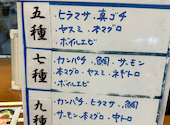 五種
・ヒラマサ・真ゴチ
・ヤズミ・本マグロ
・ボイルエビ
七種
・カンパチ・鯛・サーモン
・本マグロ・ヤズミ・ネギトロ
・ボイルエビ
九種
・カンパチ・ヒラマサ・鯛
・サーモン・本マグロ・中トロ